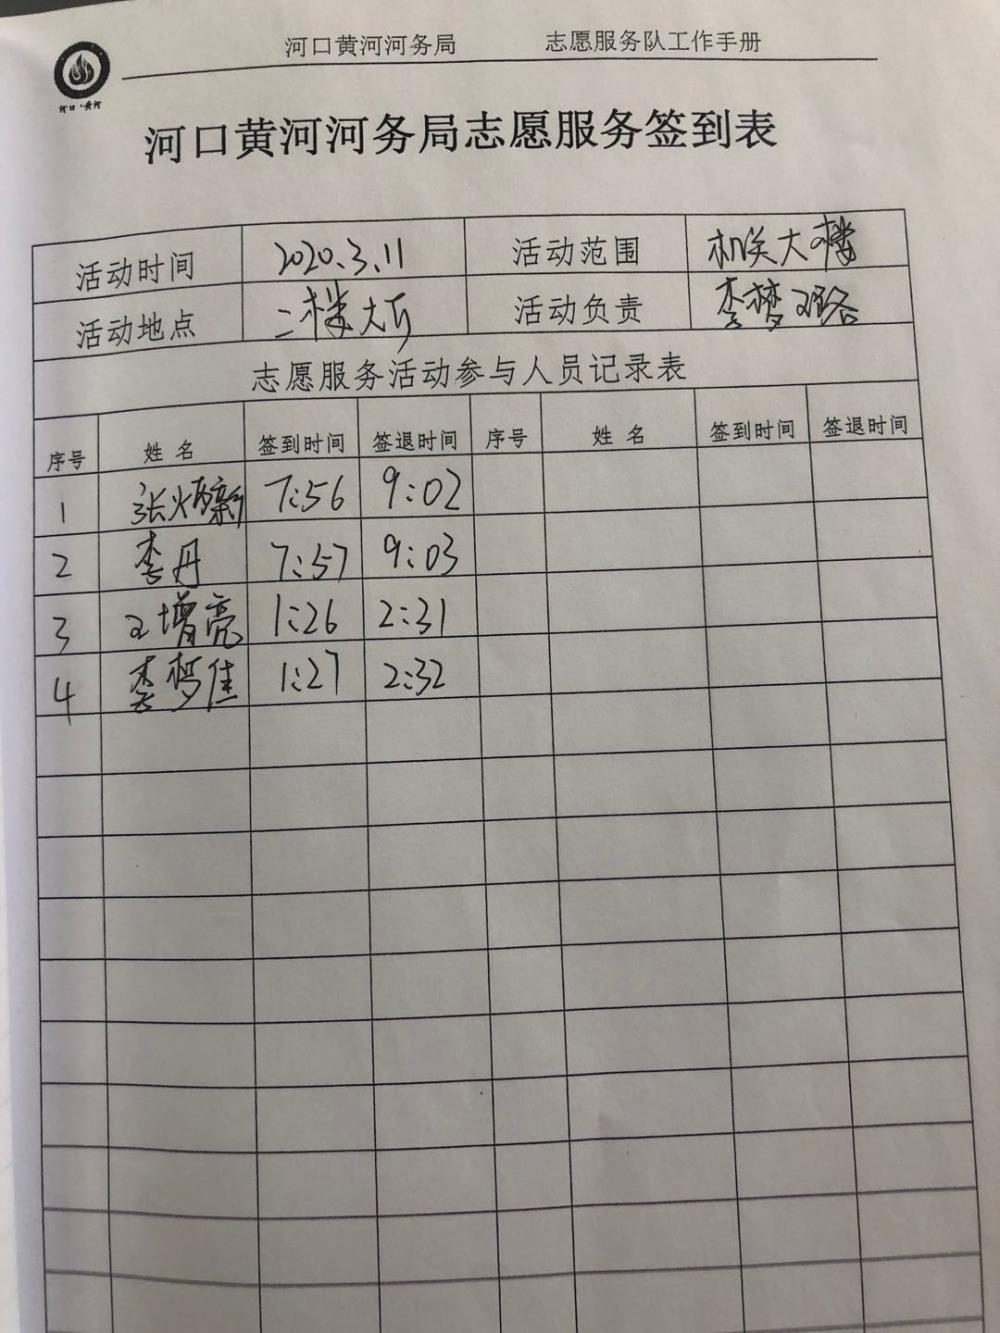 河口黄河河务局 志愿服务队工作手册
河口·黄河
河口黄河河务局志愿服务签到表
活动时间 2020.3.11 活动范围 机关大楼
活动地点 二楼大厅 活动负责 李梦璐
志愿服务活动参与人员记录表
序号 姓名 签到时间 签退时间 序号 姓名 签到时间 签退时间
1 7:56 9:02
2 李丹 7:57 9:03
3 王增亮 1:26 2:31
4 李梦佳 1:27 2:32